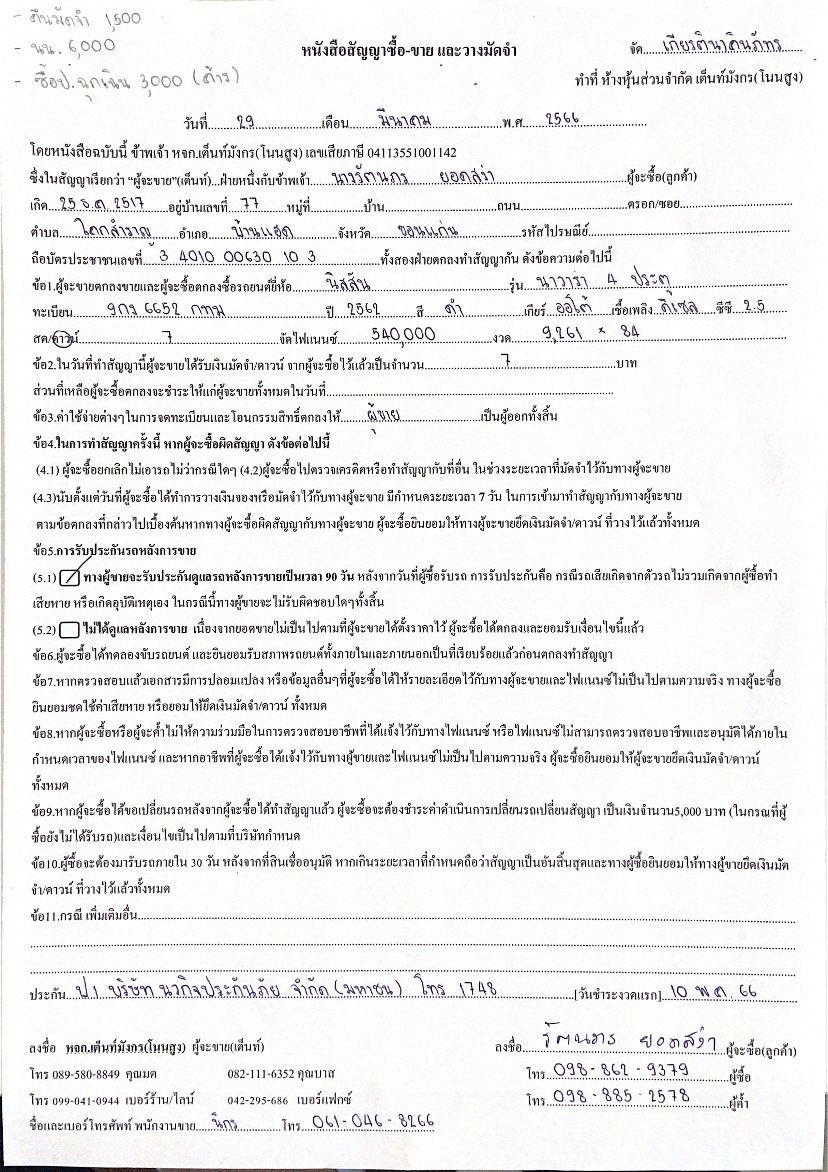 - คืนมัดจำ 1,500
- นน. 6,000
- ซื้อป.ฉุกเฉิน 3,000 (ค้าง)
หนังสือสัญญาซื้อ-ขาย และวางมัดจำ
จัด เกียรตินาคินภัทร
ทำที่ ห้างหุ้นส่วนจำกัด เต็นท์มังกร(โนนสูง)
วันที่ 29 เดือน มีนาคม พ.ศ 2566
โดยหนังสือฉบับนี้ ข้าพเจ้า หจก.เต็นท์มังกร(โนนสูง) เลขเสียภาษี 04113551001142
ซึ่งในสัญญาเรียกว่า "ผู้จะขาย"(เต็นท์)...ฝ่ายหนึ่งกับข้าพเจ้า ยอดสง่า ผู้จะซื้อ(ลูกค้า)
เกิด 25 ธ.ค. 2517 อยู่บ้านเลขที่ 77 หมู่ที่ บ้าน ถนน ตรอก/ซอย
ตำบล โคกสำราญ อำเภอ บ้านแฮด จังหวัด ขอนแก่น รหัสไปรษณีย์
ถือบัตรประชาชนเลขที่ 3 4010 00630 10 3 ทั้งสองฝ่ายตกลงทำสัญญากัน ดังข้อความต่อไปนี้
ข้อ1.ผู้จะขายตกลงขายและผู้จะซื้อตกลงซื้อรถยนต์ยี่ห้อ นิสสัน รุ่น นาวาร่า 4 ประตู
ทะเบียน 9กง 6652 กทม ปี 2562 สี ดำ เกียร์ ออโต้ เชื้อเพลิง ดีเซล ซีซี 2.5
สด/ดาวน์ 7 จัดไฟแนนซ์ 540,000 งวด 9,261 × 84
ข้อ2.ในวันที่ทำสัญญานี้ผู้จะขายได้รับเงินมัดจำ/ดาวน์ จากผู้จะซื้อไว้แล้วเป็นจำนวน 7 บาท
ส่วนที่เหลือผู้จะซื้อตกลงจะชำระให้แก่ผู้จะขายทั้งหมดในวันที่
ข้อ3.ค่าใช้จ่ายต่างๆในการจดทะเบียนและโอนกรรมสิทธิ์ตกลงให้ ผู้ขาย เป็นผู้ออกทั้งสิ้น
ข้อ4.ในการทำสัญญาครั้งนี้ หากผู้จะซื้อผิดสัญญา ดังข้อต่อไปนี้
(4.1) ผู้จะซื้อยกเลิกไม่เอารถไม่ว่ากรณีใดๆ (4.2)ผู้จะซื้อไปตรวจเครดิตหรือทำสัญญากับที่อื่น ในช่วงระยะเวลาที่มัดจำไว้กับทางผู้จะขาย
(4.3)นับตั้งแต่วันที่ผู้จะซื้อได้ทำการวางเงินจองหรือมัดจำไว้กับทางผู้จะขาย มีกำหนดระยะเวลา 7 วัน ในการเข้ามาทำสัญญากับทางผู้จะขาย
ตามข้อตกลงที่กล่าวไปเบื้องต้นหากทางผู้จะซื้อผิดสัญญากับทางผู้จะขาย ผู้จะซื้อยินยอมให้ทางผู้จะขายยึดเงินมัดจำ/ดาวน์ ที่วางไว้แล้วทั้งหมด
ข้อ5.การรับประกันรถหลังการขาย
(5.1) ทางผู้ขายจะรับประกันดูแลรถหลังการขายเป็นเวลา 90 วัน หลังจากวันที่ผู้ซื้อรับรถ การรับประกันคือ กรณีรถเสียเกิดจากตัวรถไม่รวมเกิดจากผู้ซื้อทำ
เสียหาย หรือเกิดอุบัติเหตุเอง ในกรณีนี้ทางผู้ขายจะไม่รับผิดชอบใดๆทั้งสิ้น
(5.2) ไม่ได้ดูแลหลังการขาย เนื่องจากยอดขายไม่เป็นไปตามที่ผู้จะขายได้ตั้งราคาไว้ ผู้จะซื้อได้ตกลงและยอมรับเงื่อนไขนี้แล้ว
ข้อ6.ผู้จะซื้อได้ทดลองขับรถยนต์ และยินยอมรับสภาพรถยนต์ทั้งภายในและภายนอกเป็นที่เรียบร้อยแล้วก่อนตกลงทำสัญญา
ข้อ7.หากตรวจสอบแล้วเอกสารมีการปลอมแปลง หรือข้อมูลอื่นๆที่ผู้จะซื้อ ได้ให้รายละเอียดไว้กับทางผู้จะขายและไฟแนนซ์ไม่เป็นไปตามความจริง ทางผู้จะซื้อ
ยินยอมชดใช้ค่าเสียหาย หรือยอมให้ยึดเงินมัดจำ/ดาวน์ ทั้งหมด
ข้อ8.หากผู้จะซื้อหรือผู้จะค้ำไม่ให้ความร่วมมือในการตรวจสอบอาชีพที่ได้แจ้งไว้กับทางไฟแนนซ์ หรือไฟแนนซ์ไม่สามารถตรวจสอบอาชีพและอนุมัติได้ภายใน
กำหนดเวลาของไฟแนนซ์ และหากอาชีพที่ผู้จะซื้อได้แจ้งไว้กับทางผู้ขายและไฟแนนซ์ไม่เป็นไปตามความจริง ผู้จะซื้อยินยอมให้ผู้จะขายยึดเงินมัดจำ/ดาวน์
ทั้งหมด
ข้อ9.หากผู้จะซื้อได้ขอเปลี่ยนรถหลังจากผู้จะซื้อได้ทำสัญญาแล้ว ผู้จะซื้อจะต้องชำระค่าดำเนินการเปลี่ยนรถเปลี่ยนสัญญา เป็นเงินจำนวน5,000 บาท (ในกรณที่ผู้
ซื้อยังไม่ได้รับรถ)และเงื่อนไขเป็นไปตามที่บริษัทกำหนด
ข้อ10.ผู้ซื้อจะต้องมารับรถภายใน 30 วัน หลังจากที่สินเชื่ออนุมัติ หากเกินระยะเวลาที่กำหนดถือว่าสัญญาเป็นอันสิ้นสุดและทางผู้ซื้อยินยอมให้ทางผู้ขายยึดเงินมัด
จำ/ดาวน์ ที่วางไว้แล้วทั้งหมด
ข้อ11.กรณี เพิ่มเติมอื่น
ประกัน ป.1 บริษัท นวกิจประกันภัย จำกัด (มหาชน) โทร 1748 [วันชำระงวดแรก] 10 พ.ค. 66
ลงชื่อ หจก.เต็นท์มังกร(โนนสูง) ผู้จะขาย(เต็นท์)
ลงชื่อ รัตนภร ยอดสง่า ผู้จะซื้อ(ลูกค้า)
โทร 089-580-8849 คุณมด 082-111-6352 คุณบาส
โทร 098-862-9379 ผู้ซื้อ
โทร 099-041-0944 เบอร์ร้าน/ไลน์ 042-295-686 เบอร์แฟกซ์
โทร 098-885-2578 ผู้ค้ำ
ชื่อและเบอร์โทรศัพท์ พนักงานขาย นิกร โทร 061-046-8266